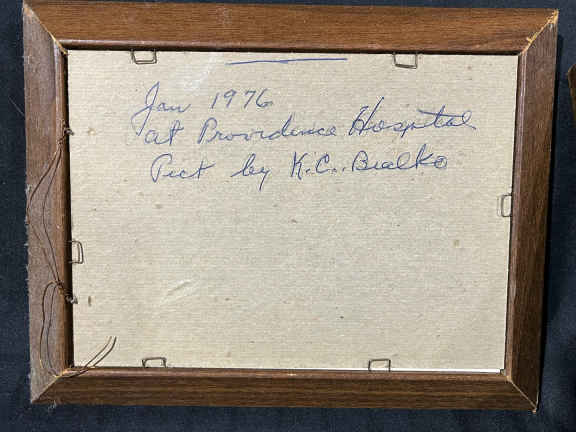 Jan 1976
at Providence Hospital
Pict by K.C.. Bialko